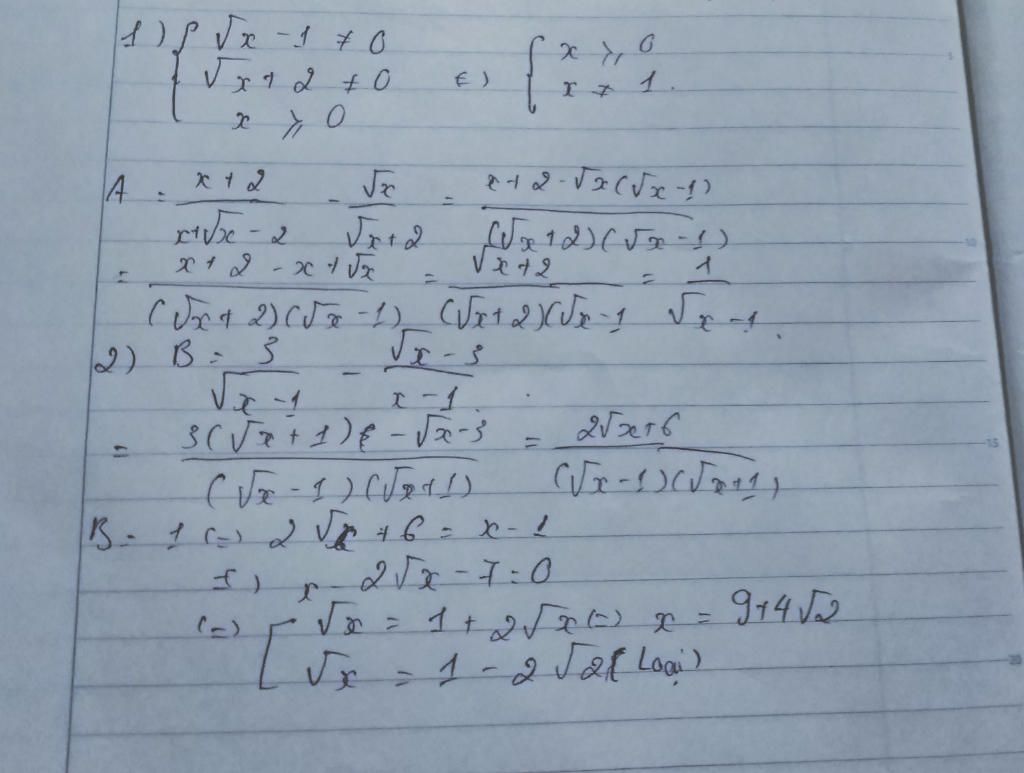 1) { √x - 1 ≠ 0
√x + 2 ≠ 0 <=> { x ≥ 0
x ≥ 0 x ≠ 1.
A = (x + 2)/(x + √x - 2) - √x/(√x + 2) = (x + 2 - √x(√x - 1))/((√x + 2)(√x - 1))
= (x + 2 - x + √x)/((√x + 2)(√x - 1)) = (√x + 2)/((√x + 2)(√x - 1) = 1/(√x - 1).
2) B = 3/(√x - 1) - (√x - 3)/(x - 1)
= (3(√x + 1) - √x - 3)/((√x - 1)(√x + 1)) = (2√x + 6)/((√x - 1)(√x + 1))
B = 1 (=) 2√x + 6 = x - 1
(=) x - 2√x - 7 = 0
(=) [ √x = 1 + 2√x (=) x = 9 + 4√2
√x = 1 - 2√2 (Loại)